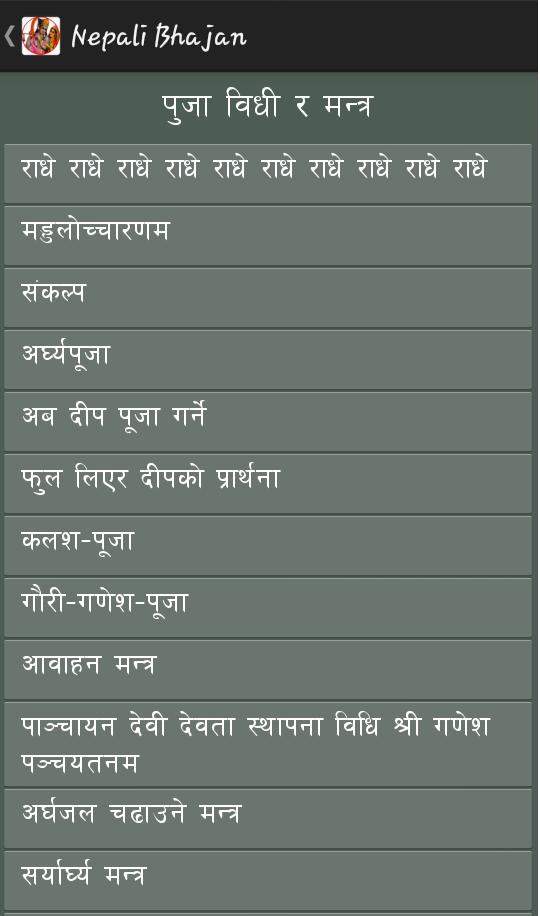 Nepali Bhajan
पुजा विधी र मन्त्र
राधे राधे राधे राधे राधे राधे राधे राधे राधे राधे
मड्डलोच्चारणम
संकल्प
अर्घ्यपूजा
अब दीप पूजा गर्ने
फुल लिएर दीपको प्रार्थना
कलश-पूजा
गौरी-गणेश-पूजा
आवाहन मन्त्र
पाञ्चायन देवी देवता स्थापना विधि श्री गणेश
पञ्चयतनम
अर्घजल चढाउने मन्त्र
सर्यार्घ्य मन्त्र